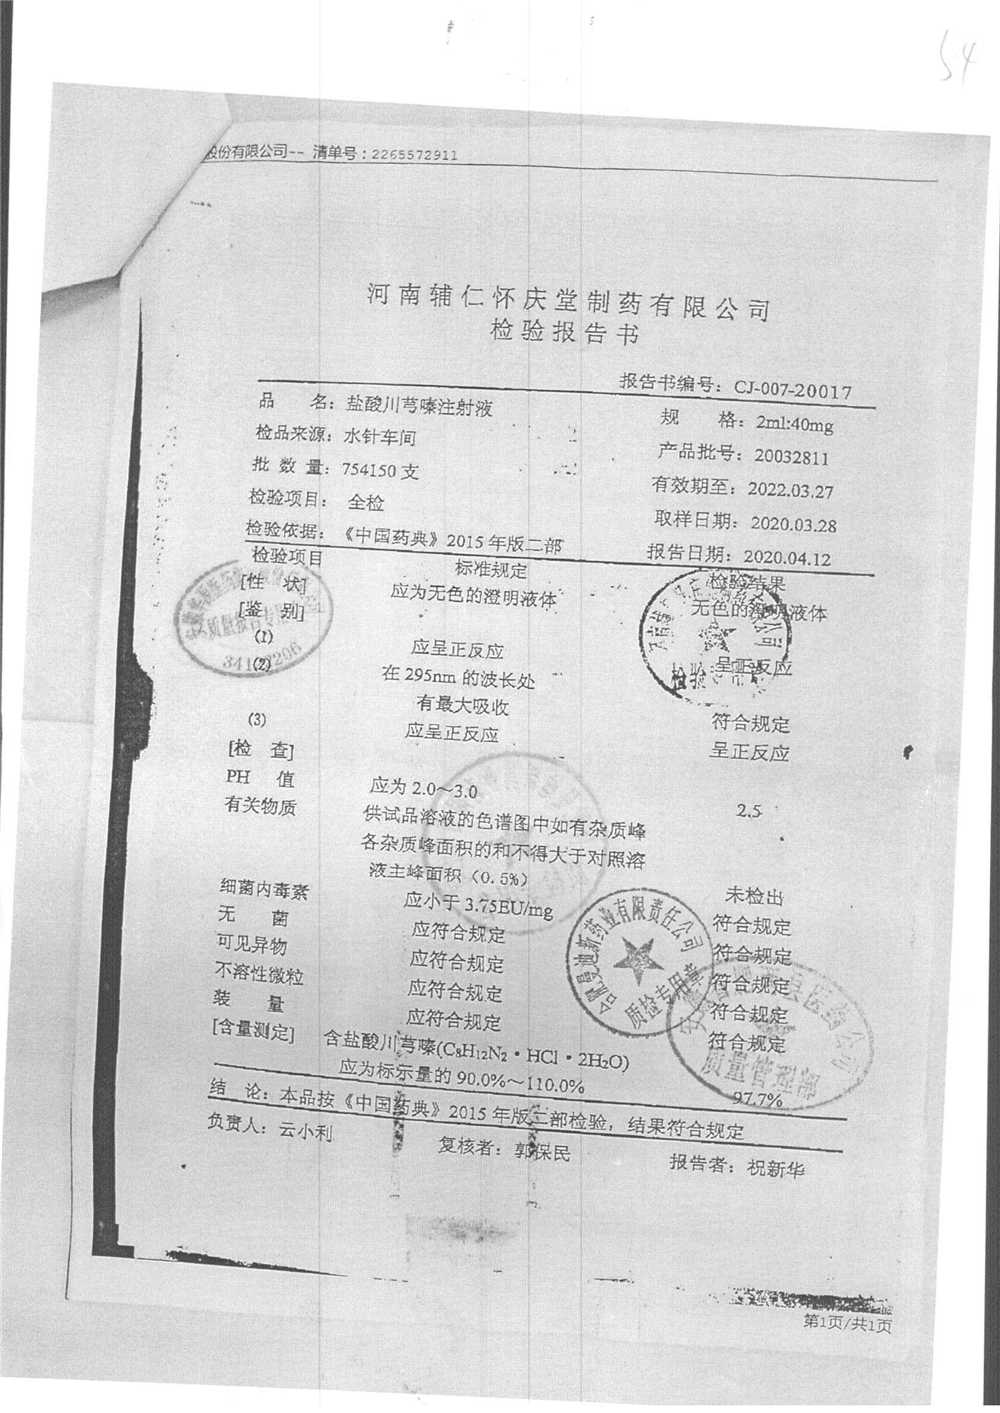 54
股份有限公司-- 清单号：2265572911
河南辅仁怀庆堂制药有限公司
检验报告书
报告书编号：CJ-007-20017
品 名：盐酸川芎嗪注射液 规 格：2ml:40mg
检品来源：水针车间 产品批号：20032811
批 数 量：754150 支 有效期至：2022.03.27
检验项目：全检 取样日期：2020.03.28
检验依据：《中国药典》2015 年版二部 报告日期：2020.04.12
检验项目 标准规定 检验结果
[性 状] 应为无色的澄明液体 无色的澄明液体
[鉴 别]
(1) 应呈正反应 呈正反应
(2) 在 295nm 的波长处
有最大吸收 符合规定
(3) 应呈正反应 呈正反应
[检 查]
PH 值 应为 2.0～3.0 2.5
有关物质 供试品溶液的色谱图中如有杂质峰
各杂质峰面积的和不得大于对照溶
液主峰面积（0.5%） 未检出
细菌内毒素 应小于 3.75EU/mg 符合规定
无 菌 应符合规定 符合规定
可见异物 应符合规定 符合规定
不溶性微粒 应符合规定 符合规定
装 量 应符合规定 符合规定
[含量测定] 含盐酸川芎嗪(C₈H₁₂N₂·HCl·2H₂O)
应为标示量的 90.0%～110.0% 97.7%
结 论：本品按《中国药典》2015 年版二部检验，结果符合规定
负责人：云小利 复核者：郭保民 报告者：祝新华
质量报告专用
合肥曼迪新药业有限责任公司
质检专用章
质量管理部
第1页/共1页